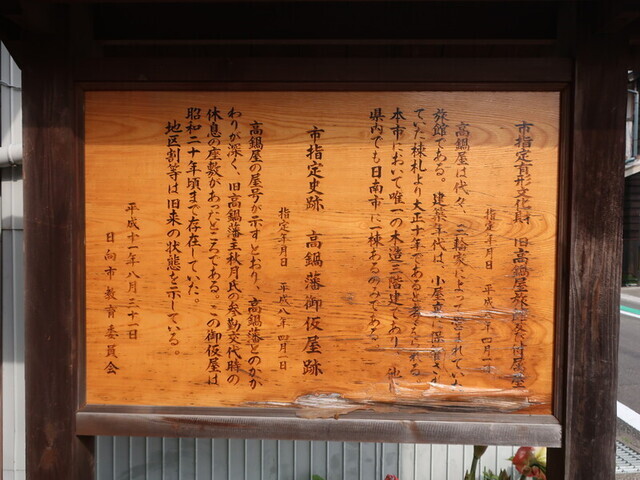 市指定有形文化財 旧高鍋屋旅館及び付属屋
指定年月日 平成 年四月一日
高鍋屋は代々、三輪家によって営まれていた
旅館である。建築年代は、小屋裏に保管さ
ていた棟札より大正十年であると考えられる。
本市において唯一の木造三階建であり、
県内でも日南市に一棟あるのみである。
市指定史跡 高鍋藩御仮屋跡
指定年月日 平成八年四月一日
高鍋屋の屋号が示すとおり、高鍋藩とのかか
わりが深く、旧高鍋藩主秋月氏の参勤交代時の
休息の座敷があったところである。この御仮屋は
昭和二十年頃まで存在していた。
地区割等は旧来の状態を示している。
平成十一年八月三十一日
日向市教育委員会